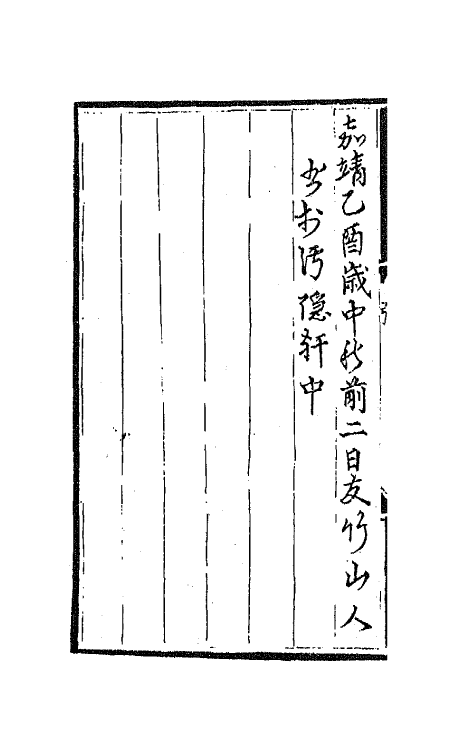 嘉靖乙酉歳中秋前二日友竹山人
书于沔隱軒中